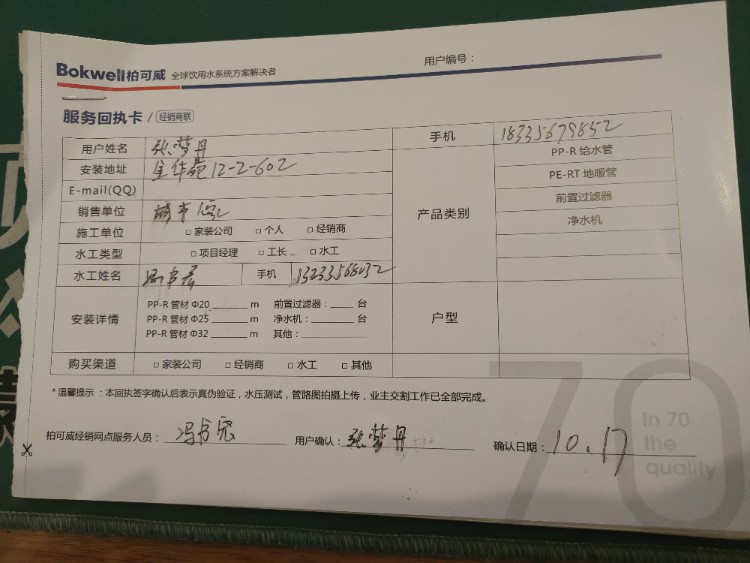 Bokwell柏可威 全球饮用水系统方案解决者
用户编号：
服务回执卡 / 经销商联
用户姓名 张梦丹 手机 18335679852
安装地址 金华苑12-2-602 产品类别 PP-R 给水管
E-mail(QQ) PE-RT 地暖管
销售单位 城市 前置过滤器
施工单位 □ 家装公司 □ 个人 □ 经销商 净水机
水工类型 □ 项目经理 □ 工长 □ 水工
水工姓名 手机
安装详情 户型
PP-R 管材 Φ20 m 前置过滤器：台
PP-R 管材 Φ25 m 净水机：台
PP-R 管材 Φ32 m 其他：
购买渠道 □ 家装公司 □ 经销商 □ 水工 □ 其他
*温馨提示：本回执签字确认后表示真伪验证，水压测试，管路图拍摄上传，业主交割工作已全部完成。
柏可威经销网点服务人员： 用户确认：张梦丹 确认日期：10.17
70
In 70
the
quality